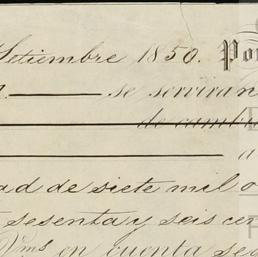 Setiembre 1850. Po
se serviran
de cambi
a
ad de siete mil o
sesenta y seis cen
Vms en cuenta se